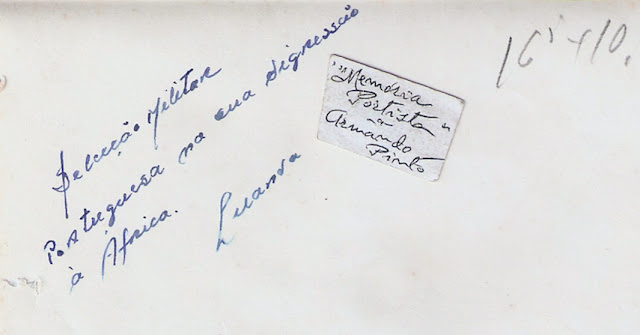 Selecção Militar
Portuguesa na sua digressão
à África.
Luanda
"Memória
Portista"
-a-
Armando
Pinto